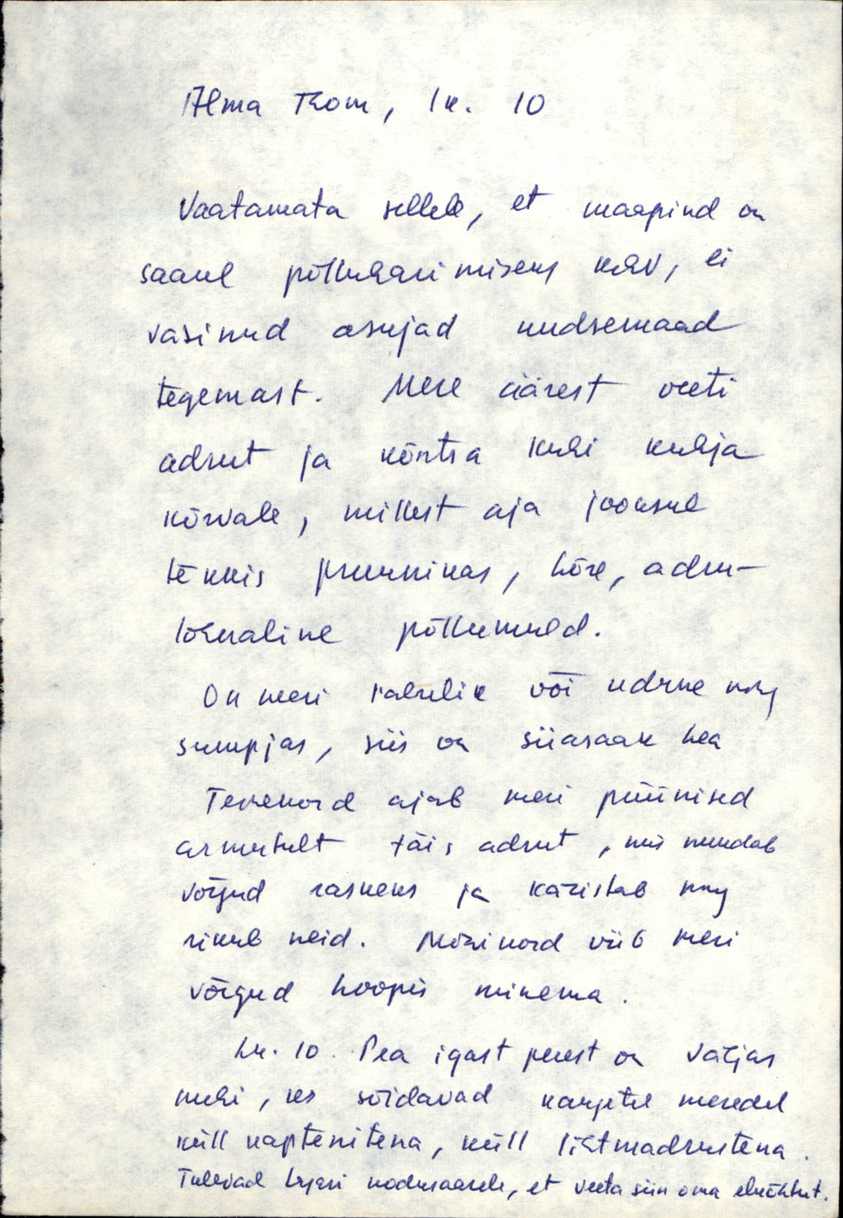 Alma Thom, lk. 10
Vaatamata sellele, et maapind on
saarel põlluharimiseks kehv, ei
väsinud asujad uudsemaad
tegemast. Mere äärest veeti
adrut ja kõntsa kuhi kuhja
kõrvale, millest aja jooksul
tekkis pruunikas, hõre, adru-
lõhnaline põllumuld.
On meri rahulik või udune ning
sumpjas, siis on siiasaak hea
Teinekord ajab meri püünised
armutult täis adrut, mis muudab
võrgud raskeks ja käristab ning
rikub neid. Mõnikord viib meri
võrgud hoopis minema.
Lk. 10. Pea igast perest on väljas
mehi, kes sõidavad kaugetel meredel
küll kaptenitena, küll lihtmadrustena.
Tulevad koju kodusaarele, et veeta siin oma eluõhtut.